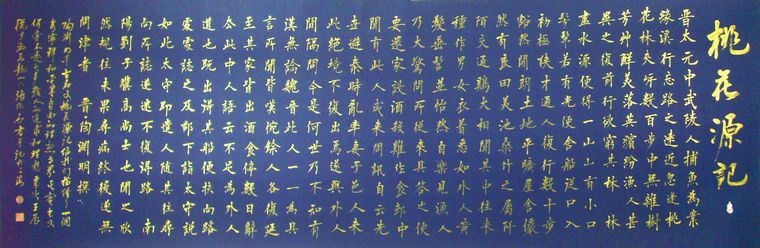 桃花源記
晉太元中武陵人捕魚為業
緣溪行忘路之遠近忽逢桃
花林夾岸數百步中無雜樹
芳艸鮮美落英繽紛漁人甚
異之復前行欲窮其林林
盡水源便得一山山有小口
髣髴若有光便舍船從口入
初極狹才通人復行數十步
豁然開朗土地平曠屋舍儼
然有良田美池桑竹之屬阡
陌交通雞犬相聞其中往來
種作男女衣著悉如外人黃
髮垂髫並怡然自樂見漁人
乃大驚問所從來具答之便
要還家設酒殺雞作食邨中
聞有此人咸來問訊自云先
世避秦時亂率妻子邑人來
此絕境不復出焉遂與外人
間隔問今是何世乃不知有
漢無論魏晉此人一一為具
言所聞皆嘆惋餘人各復延
至其家皆出酒食停數日辭
去此中人語云不足為外人
道也既出得其船便扶向路
處處誌之及郡下詣太守說
如此太守即遣人隨其往尋
向所誌遂迷不復得路 南
陽劉子驥高尚士也聞之欣
然規往未果尋病終後遂無
問津者 晉·陶淵明撰